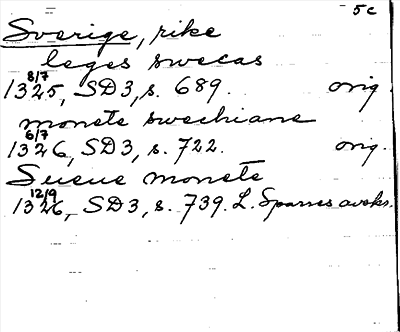 5c
Sverige, rike
leges swecas
8/7
1325, SD3, s. 689. orig.
monete swechiane
6/7
1326, SD3, s. 722. orig.
Sueue monete
12/9
1326, SD3, s. 739. L. Sparres avskr.